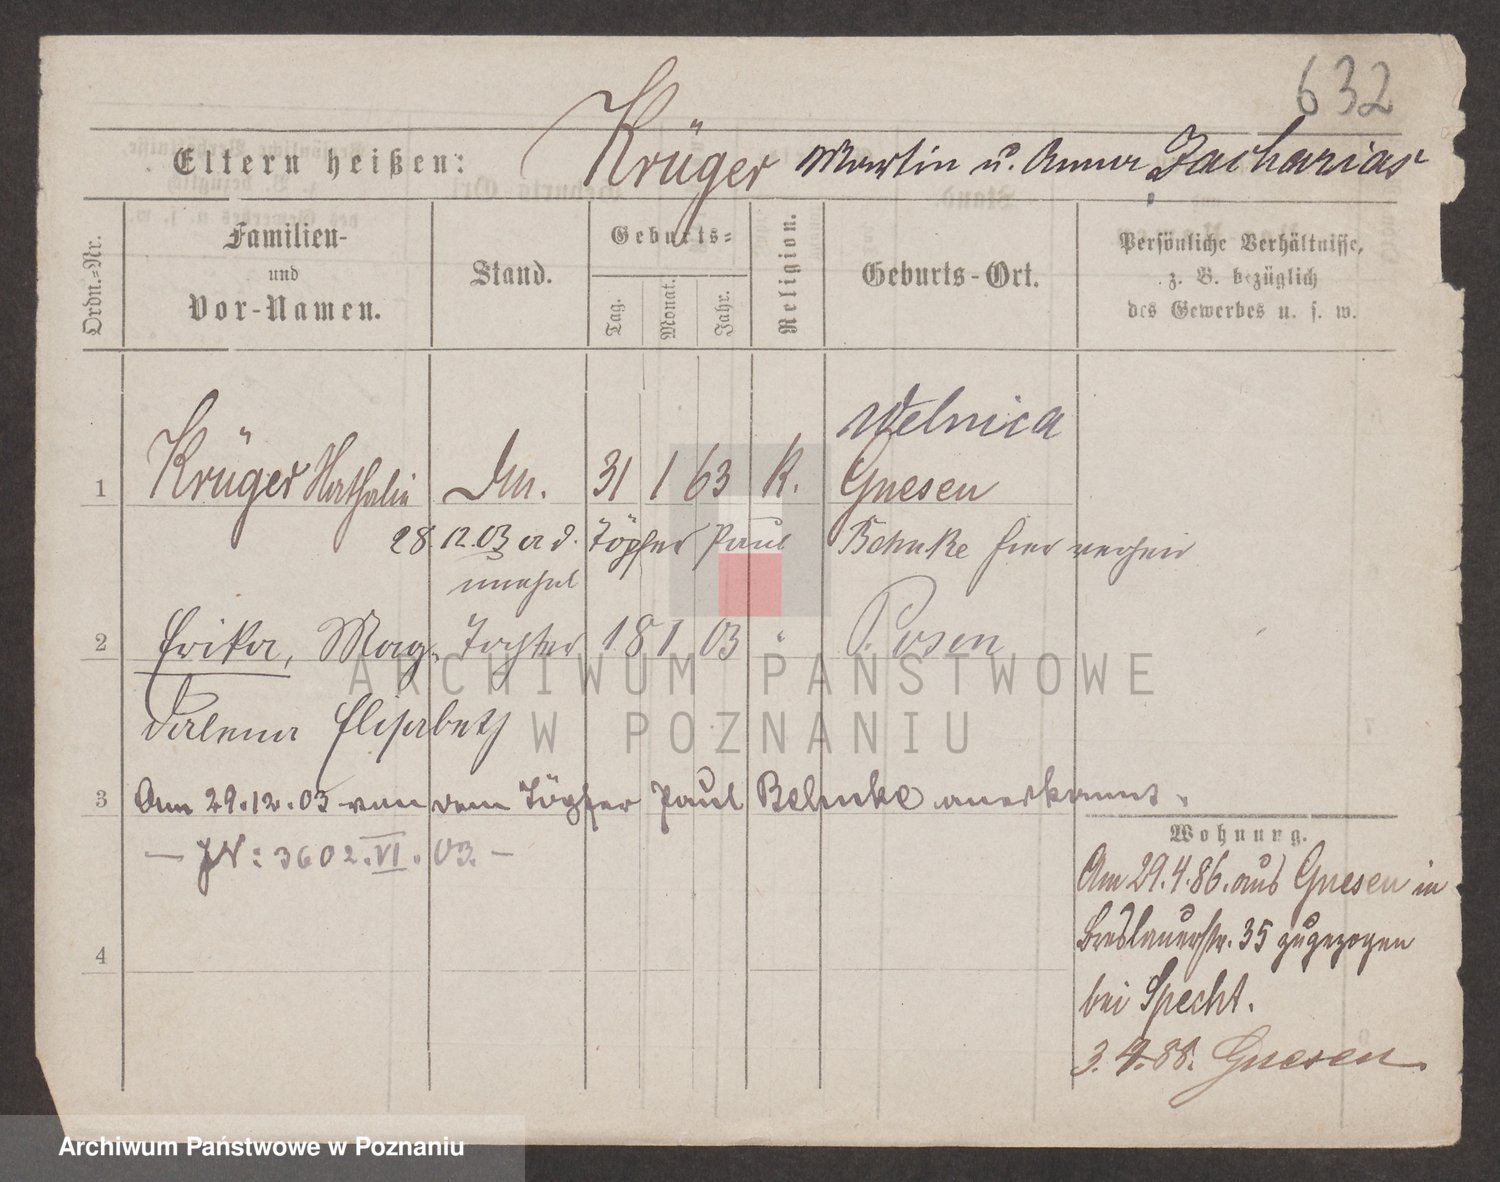 632
Eltern heißen: Krüger Martin u. Anna Zacharias
Ordn.-Nr.
Familien-
und
Vor-Namen.
Stand.
Geburts-
Tag.
Monat.
Jahr.
Religion.
Geburts-Ort.
Persönliche Verhältnisse,
z. B. bezüglich
des Gewerbes u. s. w.
Welnica
1 Krüger Nathalie 31 1 63 K. Gnesen
28.12.03 a d. Töpfer Paul hier verheir
unehel
2 Erika, Mag- Tochter 18 1 03 " Posen
dalena Elisabeth
3 Am 29.12.03 von dem Töpfer Paul Behnke anerkannt.
— JN: 3602.VI.03. —
4
Wohnung.
Am 29.4.86. aus Gnesen in
Breslauerstr. 35 zugezogen
bei Specht.
3. 4. 88. Gnesen
ARCHIWUM PAŃSTWOWE
W POZNANIU
Archiwum Państwowe w Poznaniu